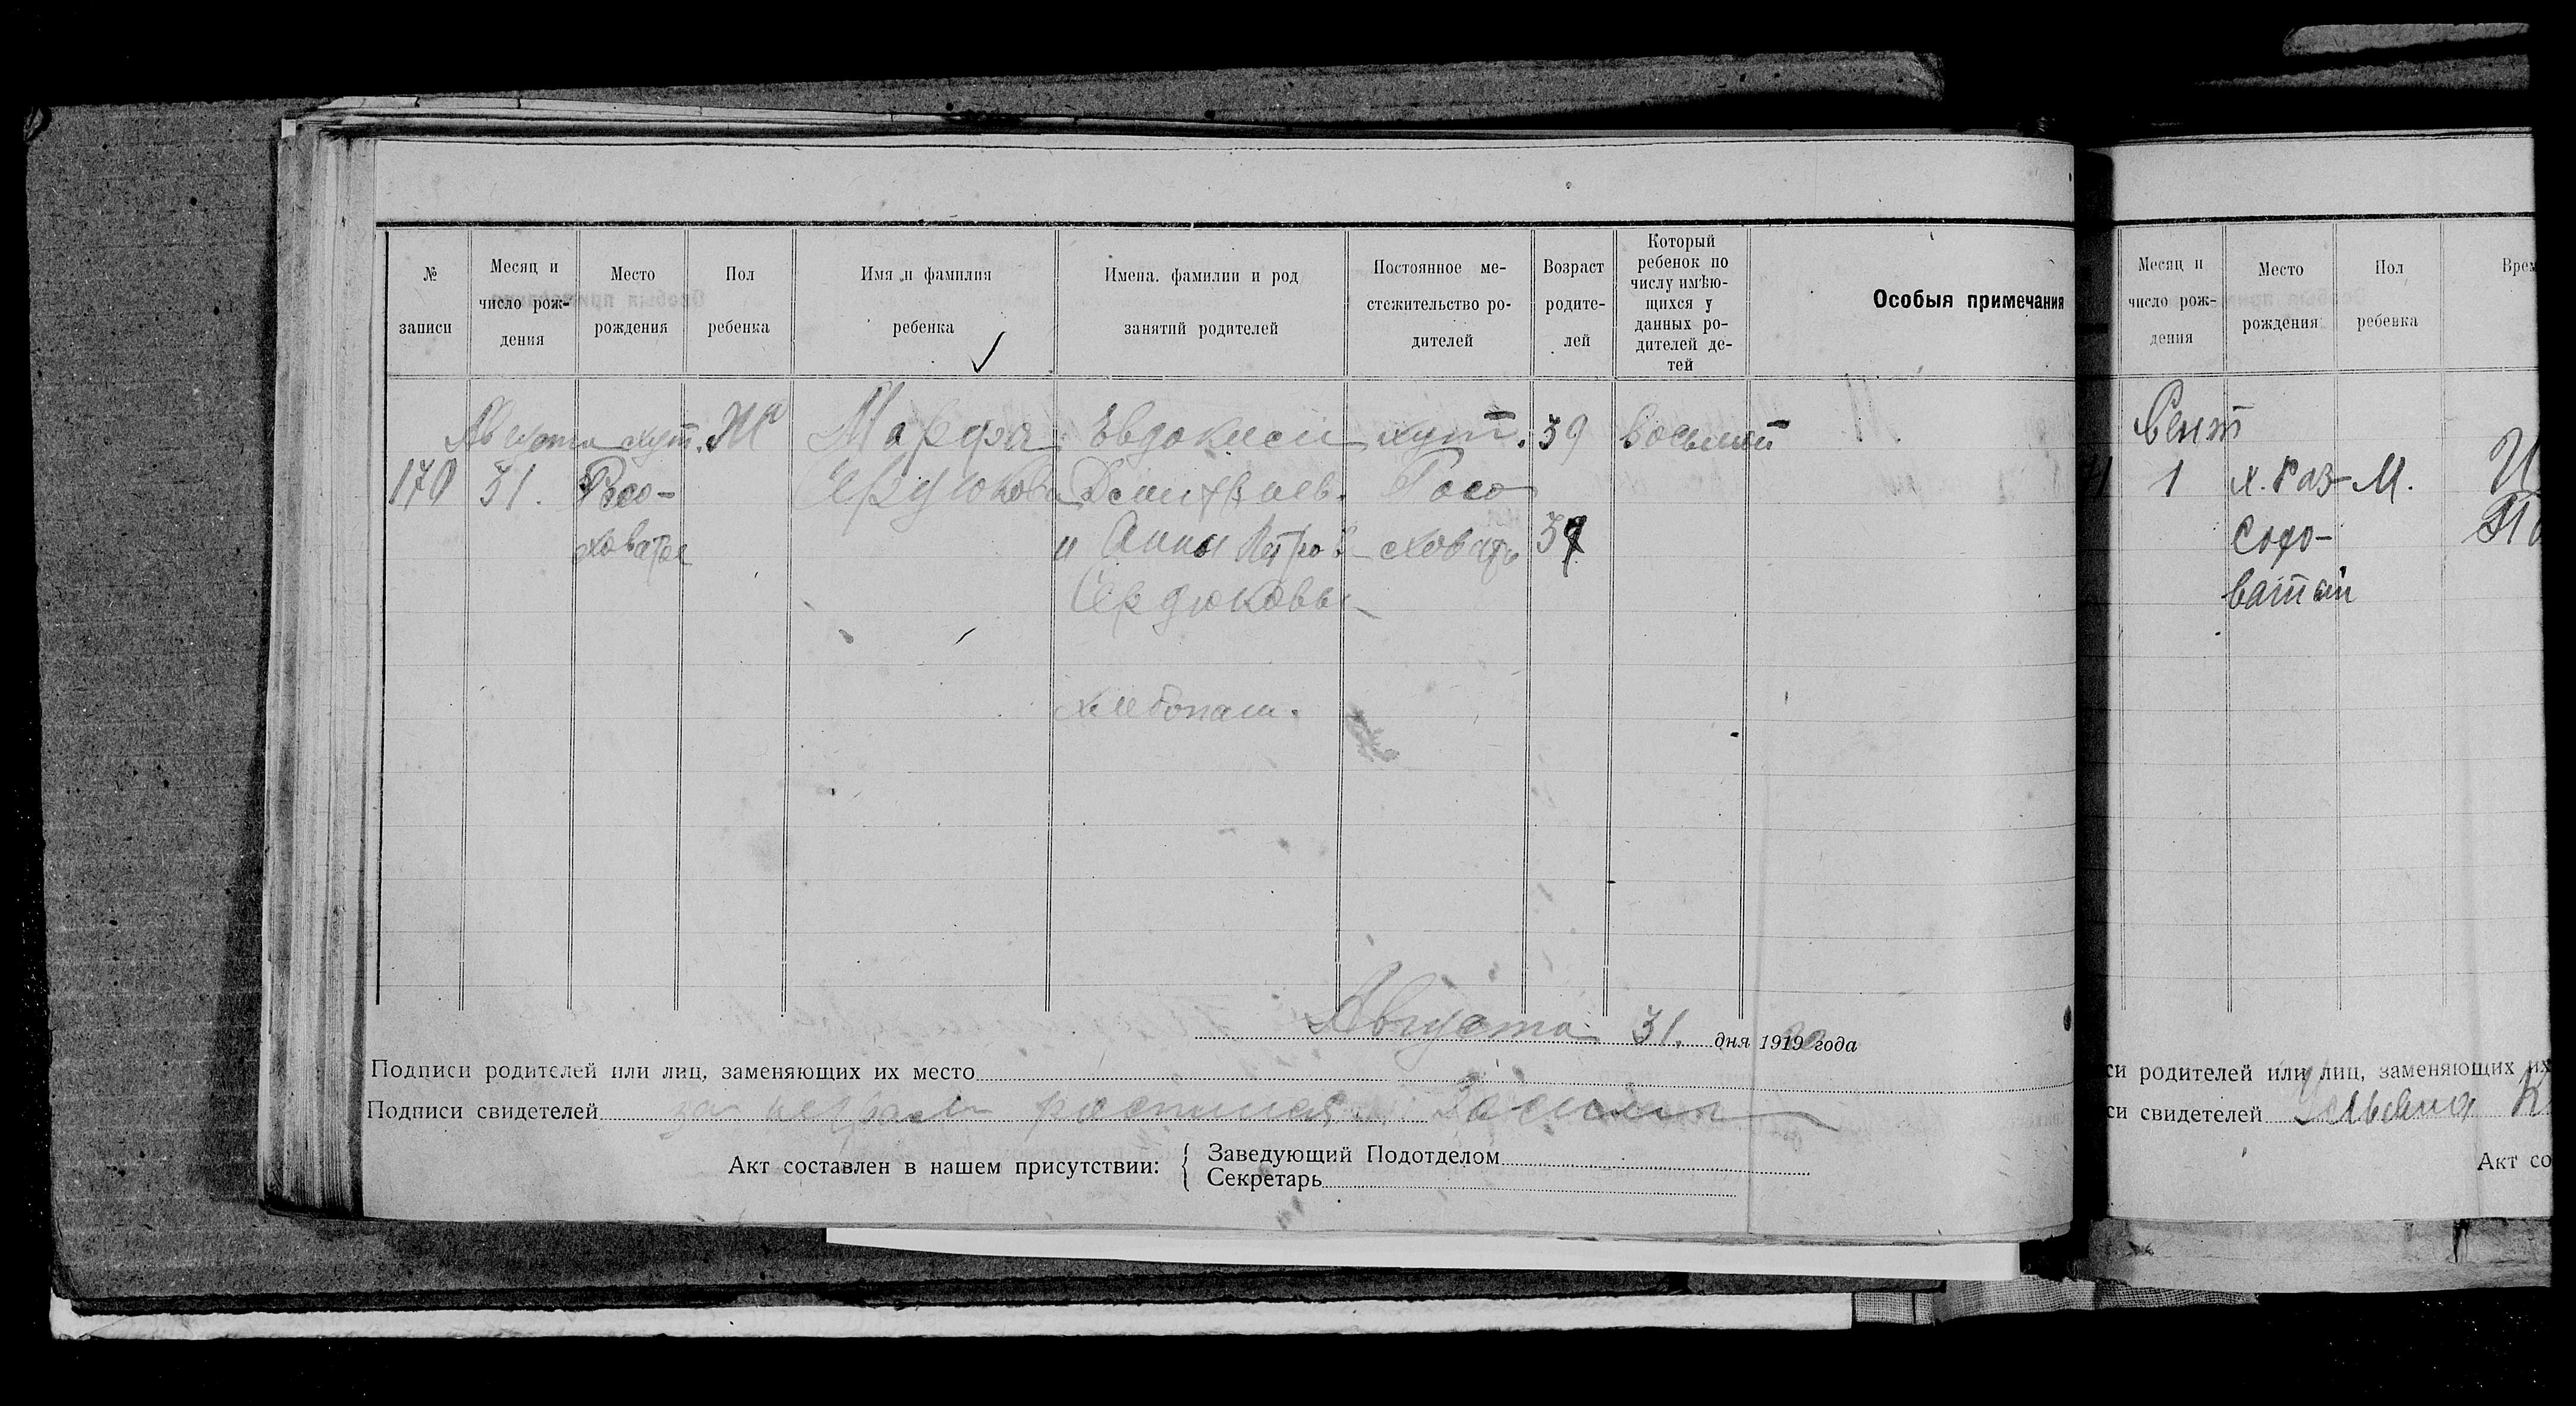 № записи
Месяц и число рож-дения
Место рождения
Пол ребенка
Имя и фамилия ребенка
Имена. фамилии и род занятий родителей
Постоянное ме-стожительство ро-дителей
Возраст родите-лей
Который ребенок по числу имѣю-щихся у данных ро-дителей де-тей
Особыя примечания
Августа хут. Ж Марфа Евдоким хут. 39 восьмой
170 31. Росо- Сердюкова Росо
ховатое и Анны Петров. ховат 39
Сердюковы
хлебопаш.
Августа 31. дня 1919 20 года
Подписи родителей или лиц, заменяющих их место
Подписи свидетелей за неграм
Акт составлен в нашем присутствии:
Заведующий Подотделом
Секретарь
Месяц и число рож-дения
Место рождения
Пол ребенка
Врем
Сент
1 х. Раз- М.
Софо-
ватый
си родителей или лиц, заменяющих их
си свидетелей
Акт со